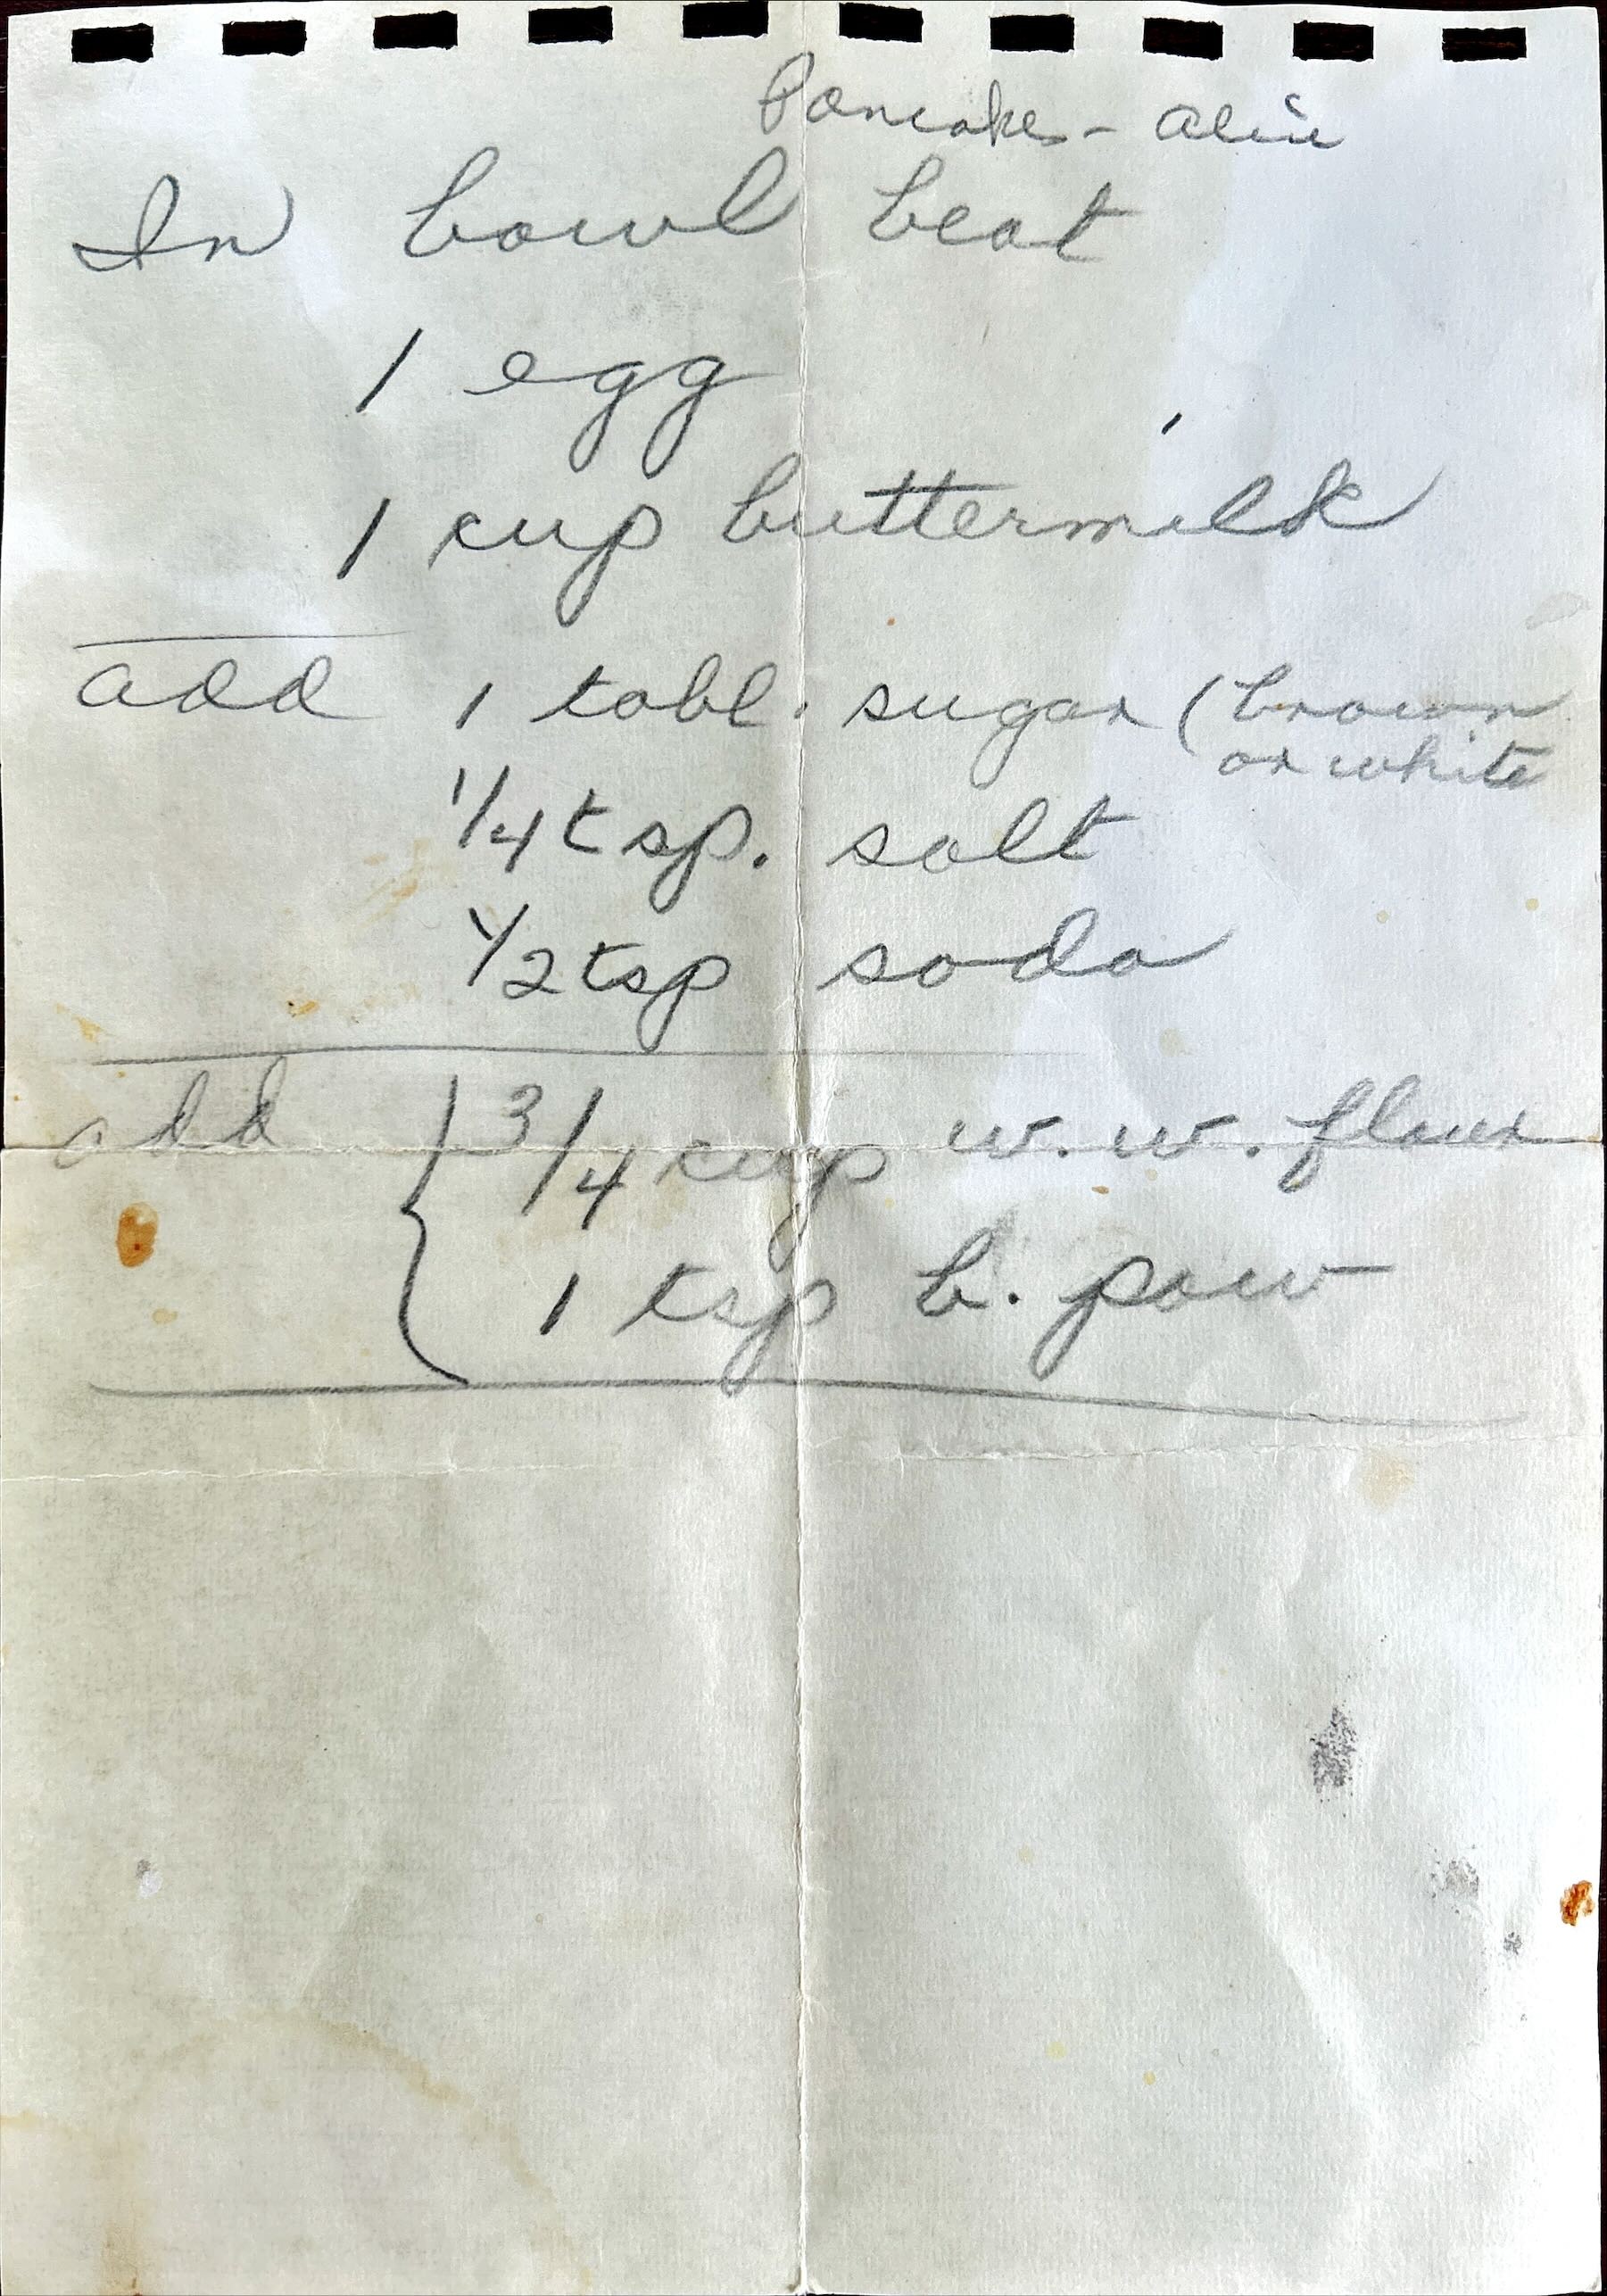 Pancakes - Alice
In bowl beat
1 egg
1 cup buttermilk
add 1 tabl. sugar (brown
or white
1/4 tsp. salt
1/2 tsp soda
add { 3/4 cup w. w. flour
1 tsp b. pow